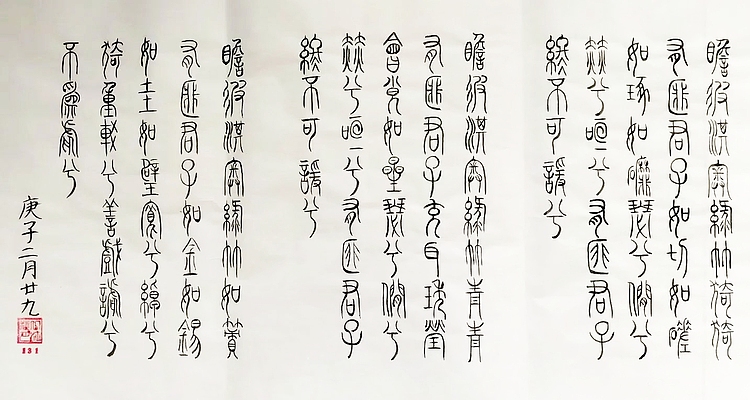 瞻彼淇奧綠竹猗猗
有匪君子如切如磋
如琢如磨瑟兮僩兮
赫兮咺兮有匪君子
終不可諼兮
瞻彼淇奧綠竹青青
有匪君子充耳琇瑩
會弁如星瑟兮僩兮
赫兮咺兮有匪君子
終不可諼兮
瞻彼淇奧綠竹如簀
有匪君子如金如錫
如圭如璧寬兮綽兮
猗重較兮善戲謔兮
不為虐兮
庚子二月廿九
131